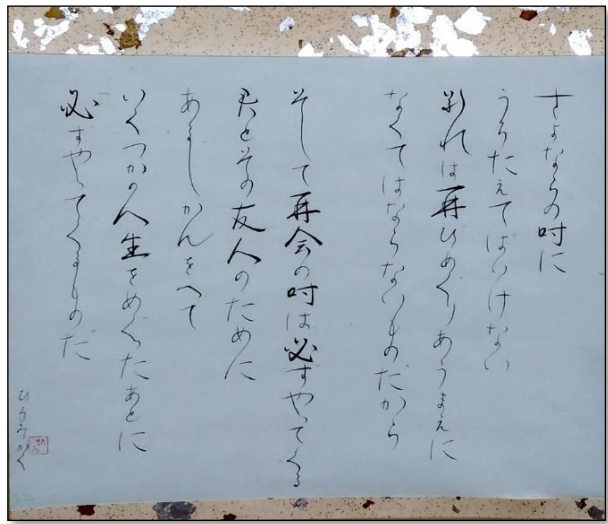 さよならの时に
うろたえてはいけない
別れは再ひめくりあうまえに
なくてはならないものだから
そして再会の时は必すやってくる
君とその友人のために
あるしかんをへて
いくつかの人生をめくったあとに
必すやってくるものだ
ひろみかく